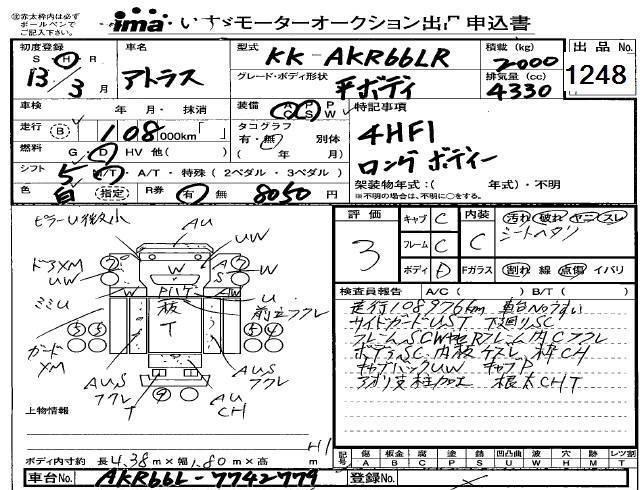 ㊟赤太枠内は必ず
ボールペンで
ご記入下さい。
ima いすゞモーターオークション出品申込書
初度登録 車名 型式 KK-AKR66LR 積載(kg) 2000 出品No.
S・H・R アトラス グレード・ボディ形状 平ボディ 排気量(cc) 4330 1248
13年 3月
車検 年 月・抹消 装備 A/C P/S P/W 特記事項
走行 B 108,000km タコグラフ 有・無 別体 4HF1
燃料 G・D HV 他( ) ( 年 月) ロングボディー
シフト 5 M/T・A/T・特殊(2ペダル・3ペダル) 架装物年式:( 年式)・不明
色 白 指定 R券 有 無 8050円 ※不明の場合は、不明に○をする。
ミラーU微小
評価 3 キャブ C 内装 C 汚れ 破れ ヤニ スレ
フレーム C シートヘタリ
ボディ D Fガラス 割れ 線 点傷 イバリ
AU
UW
W
ドアXM
UW
ミミU
ガードXM
板
T
U
前立フクレ
AUS
フクレ
T
AUS
フクレ
AU
CH
検査員報告 A/C( ) B/T( )
走行108976km 車台Noうすい
サイドガードU,ST 下廻りSC
フレームSCWセRフレーム内Cフクレ
ボデーSC 内板ケズレ 枠CH
キャブバックUW キャブP
アオリ支柱加工 根太CHT
上物情報
ボディ内寸約 長4.38m×幅1.80m×高 m
記号 傷A 板金B 腐C 塗P 錆S 凹凸曲U 波W 穴H 跡M レツ割T
車台No. AKR66L-7742779 登録No.